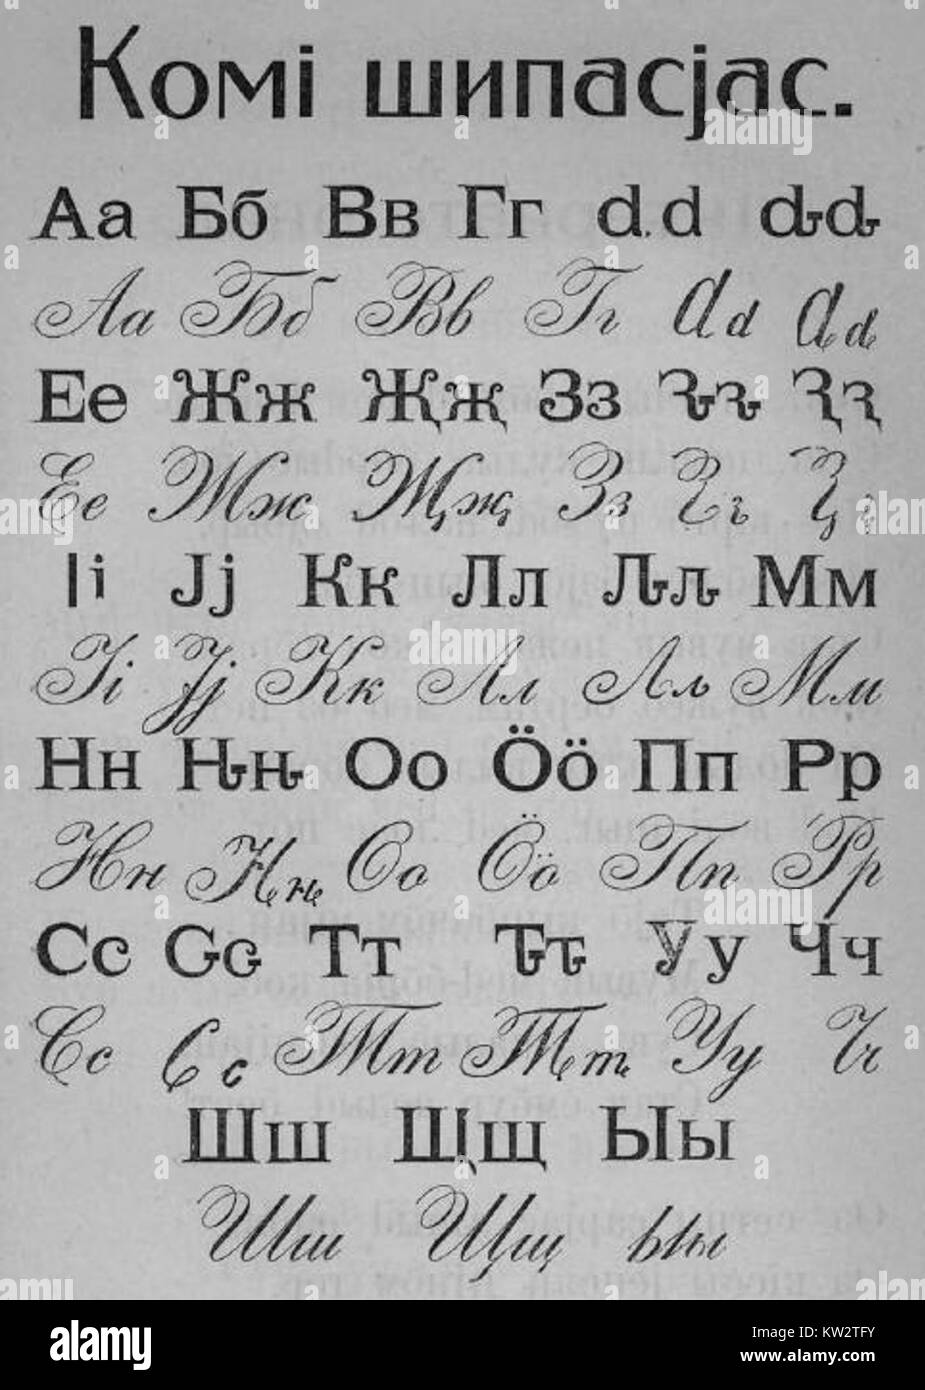 Комі шипасјас.
Аа Бб Вв Гг Ԁԁ Ԃԃ
Аа Бб Вв Гг Ԁԁ Ԃԃ
Ее Жж Җҗ Зз Ԅԅ Ԇԇ
Ее Жж Җҗ Зз Ԅԅ Ԇԇ
Іі Јј Кк Лл Ԉԉ Мм
Іі Јј Кк Лл Ԉԉ Мм
Нн Ԋԋ Оо Ӧӧ Пп Рр
Нн Ԋԋ Оо Ӧӧ Пп Рр
Сс Ԍԍ Тт Ԏԏ Уу Чч
Сс Ԍԍ Тт Ԏԏ Уу Чч
Шш Щщ Ыы
Шш Щщ ыы
alamy stock photo
KW2TFY
www.alamy.com